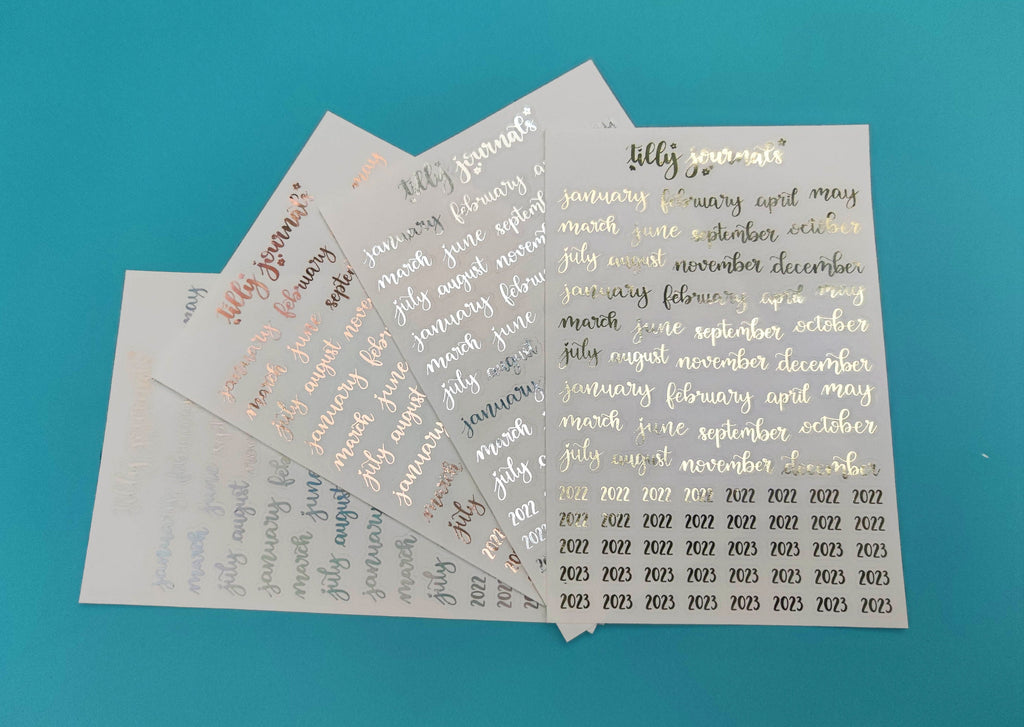 tilly journals
january february april may
march june september october
july august november december
january february april may
march june september october
july august november december
january february april may
march june september october
july august november december
2022 2022 2022 2022 2022 2022 2022 2022
2022 2022 2022 2022 2022 2022 2022 2022
2022 2022 2022 2023 2023 2023 2023 2023
2023 2023 2023 2023 2023 2023 2023 2023
2023 2023 2023 2023 2023 2023 2023 2023
tilly journals
january february a
march june septem
july august novem
january febru
march june
july august
january
march
july
2022
2022
may
tilly journals
january february
march june septe
july august nove
january febr
march june
july august
january
march
july
2022
may
january
march june
july august
january feb
march june
july august
january
march
july
2022